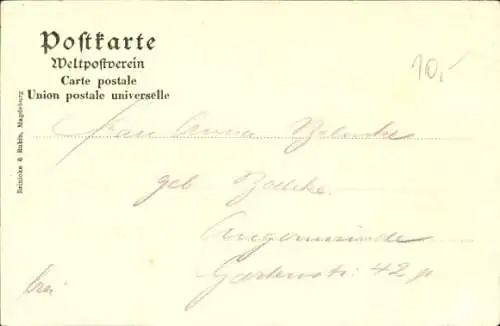 Postkarte
Weltpostverein
Carte postale
Union postale universelle
10,-
Reinicke & Rubin, Magdeburg
Frau Anna
geb.
Angermünde
Gartenstr. 42
frei